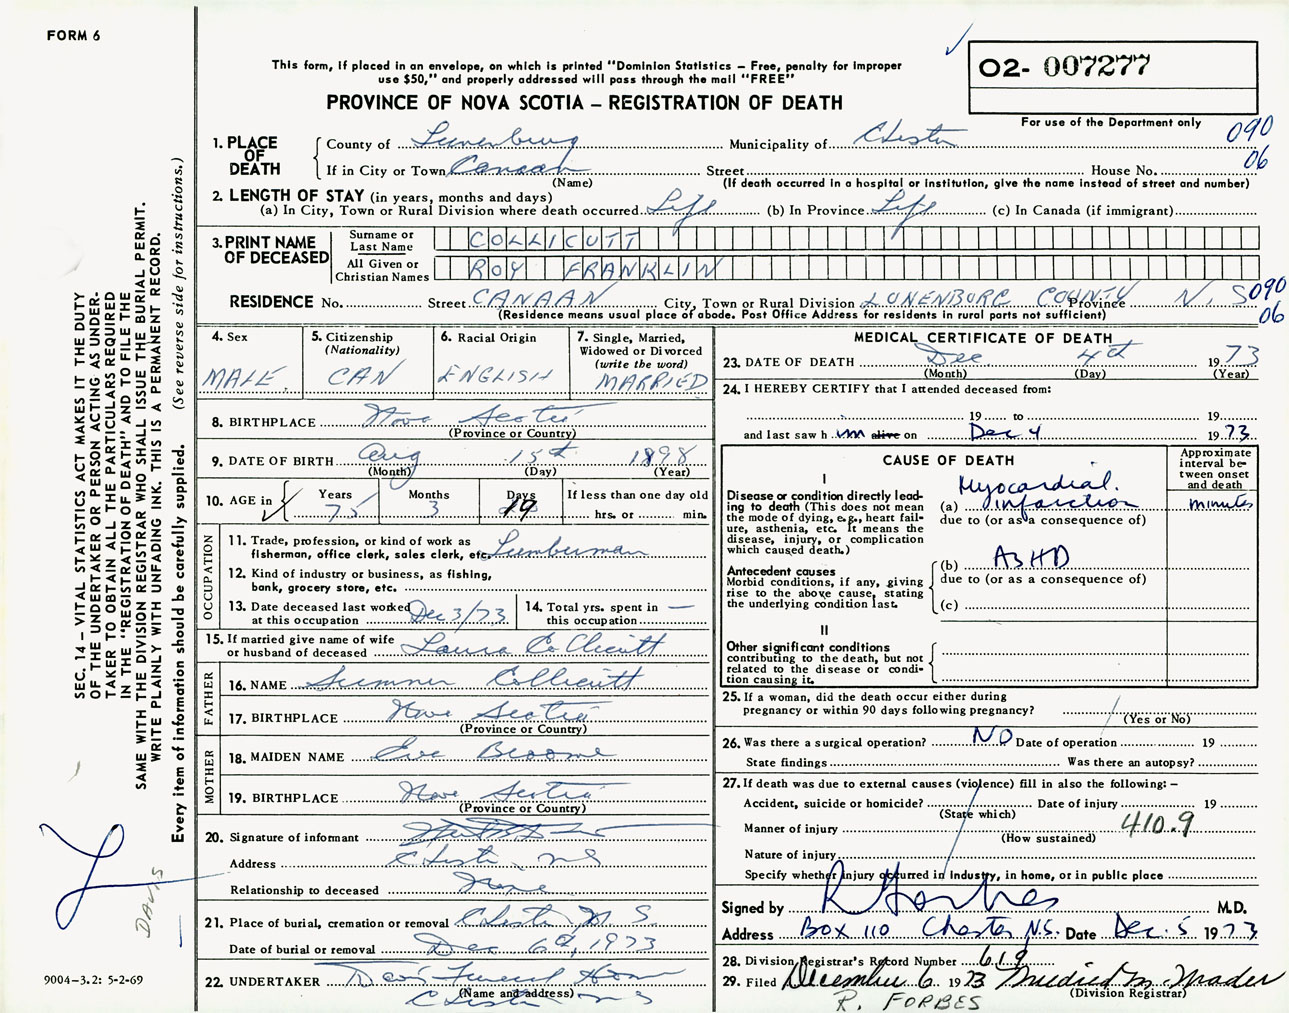 FORM 6
This form, if placed in an envelope, on which is printed "Dominion Statistics – Free, penalty for improper
use $50," and properly addressed will pass through the mail "FREE"
PROVINCE OF NOVA SCOTIA – REGISTRATION OF DEATH
O2- 007277
For use of the Department only
090
06
1. PLACE OF DEATH
County of Lunenburg Municipality of Chester
If in City or Town Canaan Street House No.
(Name) (If death occurred in a hospital or institution, give the name instead of street and number)
2. LENGTH OF STAY (in years, months and days)
(a) In City, Town or Rural Division where death occurred Life (b) In Province Life (c) In Canada (if immigrant)
3. PRINT NAME OF DECEASED
Surname or Last Name COLLICUTT
All Given or Christian Names ROY FRANKLIN
RESIDENCE No. Street CANAAN City, Town or Rural Division LUNENBURG COUNTY Province N.S 090
(Residence means usual place of abode. Post Office Address for residents in rural parts not sufficient) 06
4. Sex
MALE
5. Citizenship
(Nationality)
CAN
6. Racial Origin
ENGLISH
7. Single, Married,
Widowed or Divorced
(write the word)
MARRIED
8. BIRTHPLACE Nova Scotia
(Province or Country)
9. DATE OF BIRTH Aug 15th 1898
(Month) (Day) (Year)
10. AGE in Years Months Days If less than one day old
75 3 19 hrs. or min.
OCCUPATION
11. Trade, profession, or kind of work as
fisherman, office clerk, sales clerk, etc. Lumberman
12. Kind of industry or business, as fishing,
bank, grocery store, etc.
13. Date deceased last worked
at this occupation Dec 3/73
14. Total yrs. spent in
this occupation —
15. If married give name of wife
or husband of deceased Laura Collicutt
FATHER
16. NAME Sumner Collicutt
17. BIRTHPLACE Nova Scotia
(Province or Country)
MOTHER
18. MAIDEN NAME Eva Broome
19. BIRTHPLACE Nova Scotia
(Province or Country)
20. Signature of informant
Address Chester NS
Relationship to deceased None
21. Place of burial, cremation or removal Chester N.S
Date of burial or removal Dec 6th, 1973
22. UNDERTAKER Davis Funeral Home
(Name and address)
Chester NS
MEDICAL CERTIFICATE OF DEATH
23. DATE OF DEATH Dec 4th 1973
(Month) (Day) (Year)
24. I HEREBY CERTIFY that I attended deceased from:
19 to 19
and last saw him alive on Dec 4 1973
CAUSE OF DEATH
Approximate
interval be-
tween onset
and death
I
Disease or condition directly lead-
ing to death (This does not mean
the mode of dying, e.g., heart fail-
ure, asthenia, etc. It means the
disease, injury, or complication
which caused death.)
Myocardial
(a) infarction minutes
due to (or as a consequence of)
Antecedent causes
Morbid conditions, if any, giving
rise to the above cause, stating
the underlying condition last.
(b) ASHD
due to (or as a consequence of)
(c)
II
Other significant conditions
contributing to the death, but not
related to the disease or condi-
tion causing it.
25. If a woman, did the death occur either during
pregnancy or within 90 days following pregnancy?
(Yes or No)
26. Was there a surgical operation? NO Date of operation 19
State findings Was there an autopsy?
27. If death was due to external causes (violence) fill in also the following: –
Accident, suicide or homicide? Date of injury 19
(State which)
Manner of injury 410.9
(How sustained)
Nature of injury
Specify whether injury occurred in industry, in home, or in public place
Signed by R Forbes M.D.
Address Box 110 Chester N.S. Date Dec. 5 1973
28. Division Registrar's Record Number 619
29. Filed December 6 1973
(Division Registrar)
R. FORBES
SEC. 14 – VITAL STATISTICS ACT MAKES IT THE DUTY
OF THE UNDERTAKER OR PERSON ACTING AS UNDER-
TAKER TO OBTAIN ALL THE PARTICULARS REQUIRED
IN THE "REGISTRATION OF DEATH" AND TO FILE THE
SAME WITH THE DIVISION REGISTRAR WHO SHALL ISSUE THE BURIAL PERMIT.
WRITE PLAINLY WITH UNFADING INK. THIS IS A PERMANENT RECORD.
Every item of information should be carefully supplied. (See reverse side for instructions.)
DAVIS
9004-3.2: 5-2-69